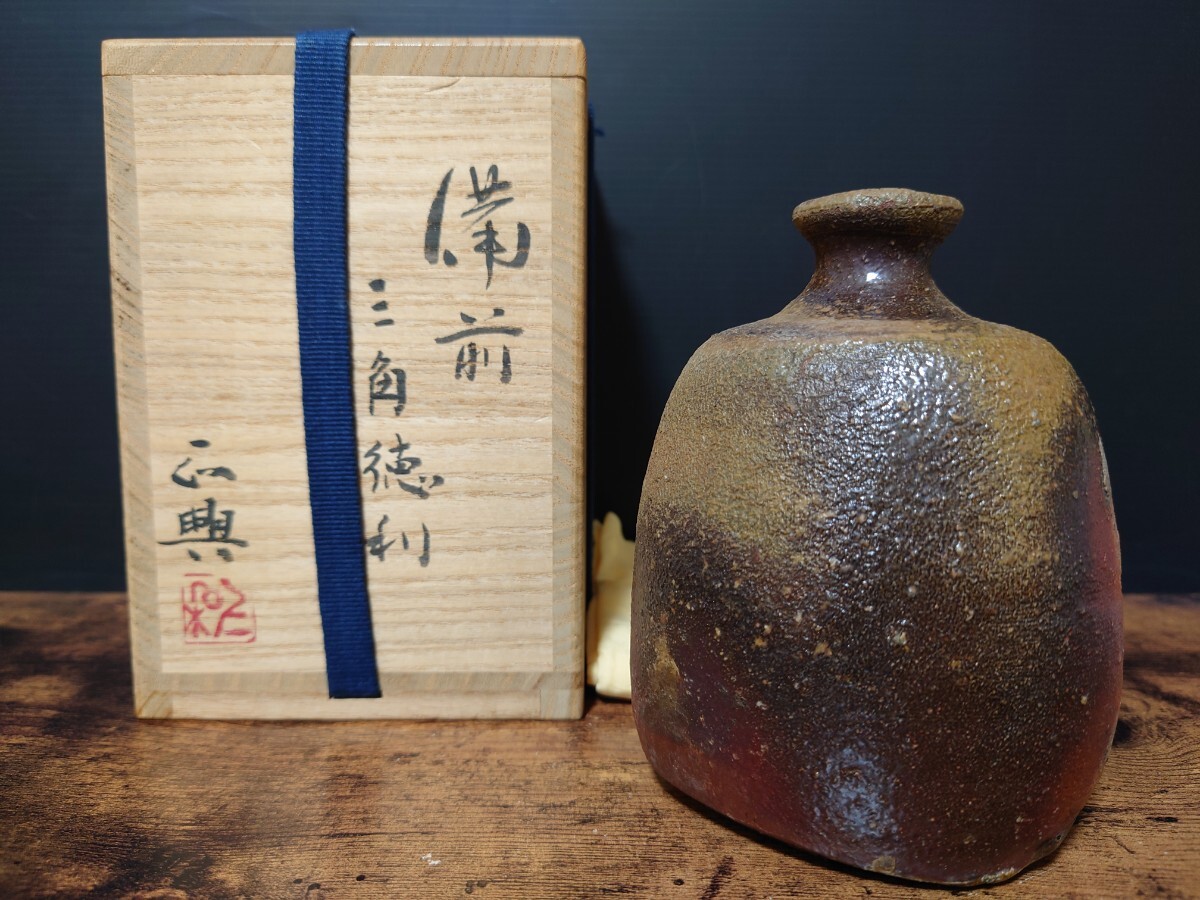 備前
三角徳利
正興